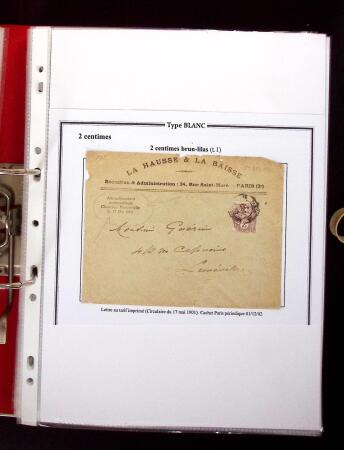 Type BLANC
2 centimes
2 centimes brun-lilas (t.1)
LA HAUSSE & LA BAISSE
Rédaction & Administration : 24, Rue Saint-Marc — PARIS (2e)
Affranchissement
Circulaire
du 17 Mai 1901
Monsieur Guérin
Lunéville
Lettre au tarif imprimé (Circulaire du 17 mai 1901). Cachet Paris périodique 01/12/02